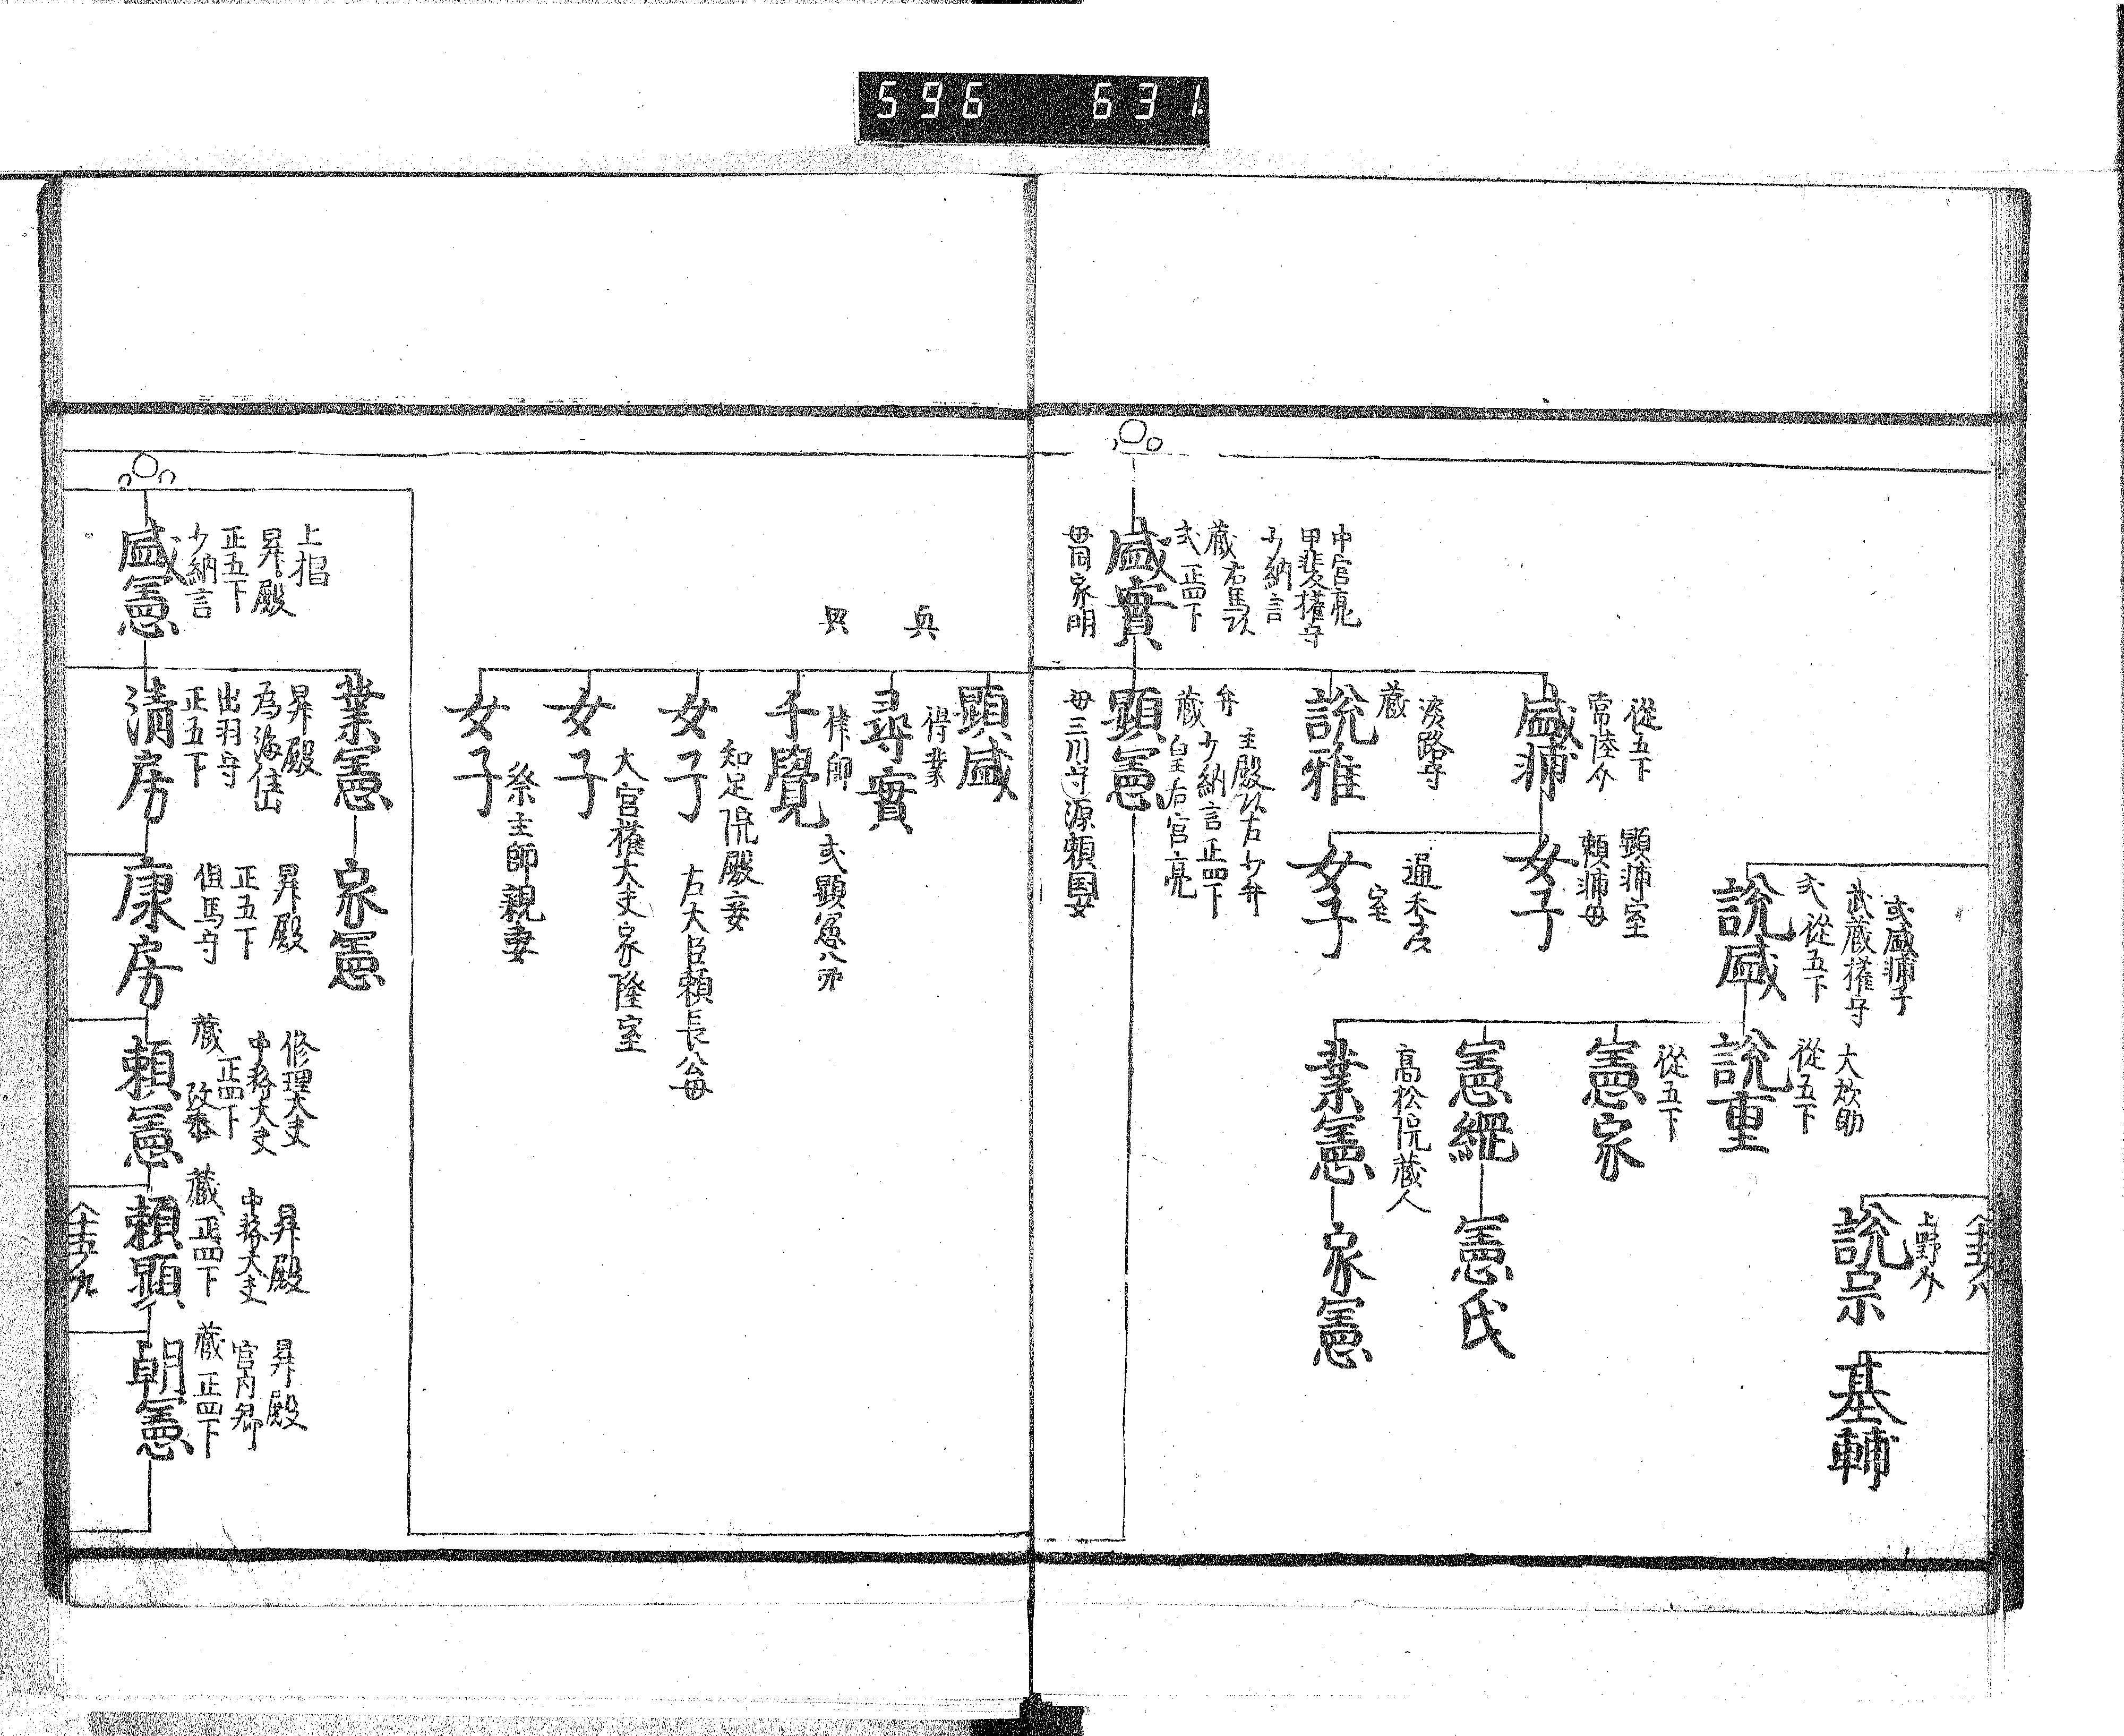 596 631
説宗
上野介
基輔
説盛
式 従五下
武蔵権守
或盛輔子
説重
従五下
大炊助
憲家
従五下
憲縄
憲氏
業憲
高松院蔵人
家憲
盛輔
常陸介
従五下
女子
頼輔母
顕輔室
説雅
蔵
淡路守
女子
室
盛實
中宮亮
甲斐権守
少納言
蔵 右馬以
式 正四下
母同家明
顕憲
弁
主殿以 右少弁
少納言 正四下
蔵 皇右宮亮
母三川守源頼国女
顕盛
尋實
得業
興
千覺
律師
或顕憲八男
興
女子
知足院殿妾
左大臣頼長公母
女子
大宮権大夫家隆室
女子
祭主師親妻
盛憲
上招
昇殿
正五下
少納言
業憲
家憲
清房
昇殿
出羽守
正五下
康房
昇殿
正五下
但馬守
頼憲
修理大夫
中務大夫
正四下
蔵
頼顕
昇殿
中務大夫
蔵 正四下
朝憲
昇殿
宮内卿
蔵 正四下